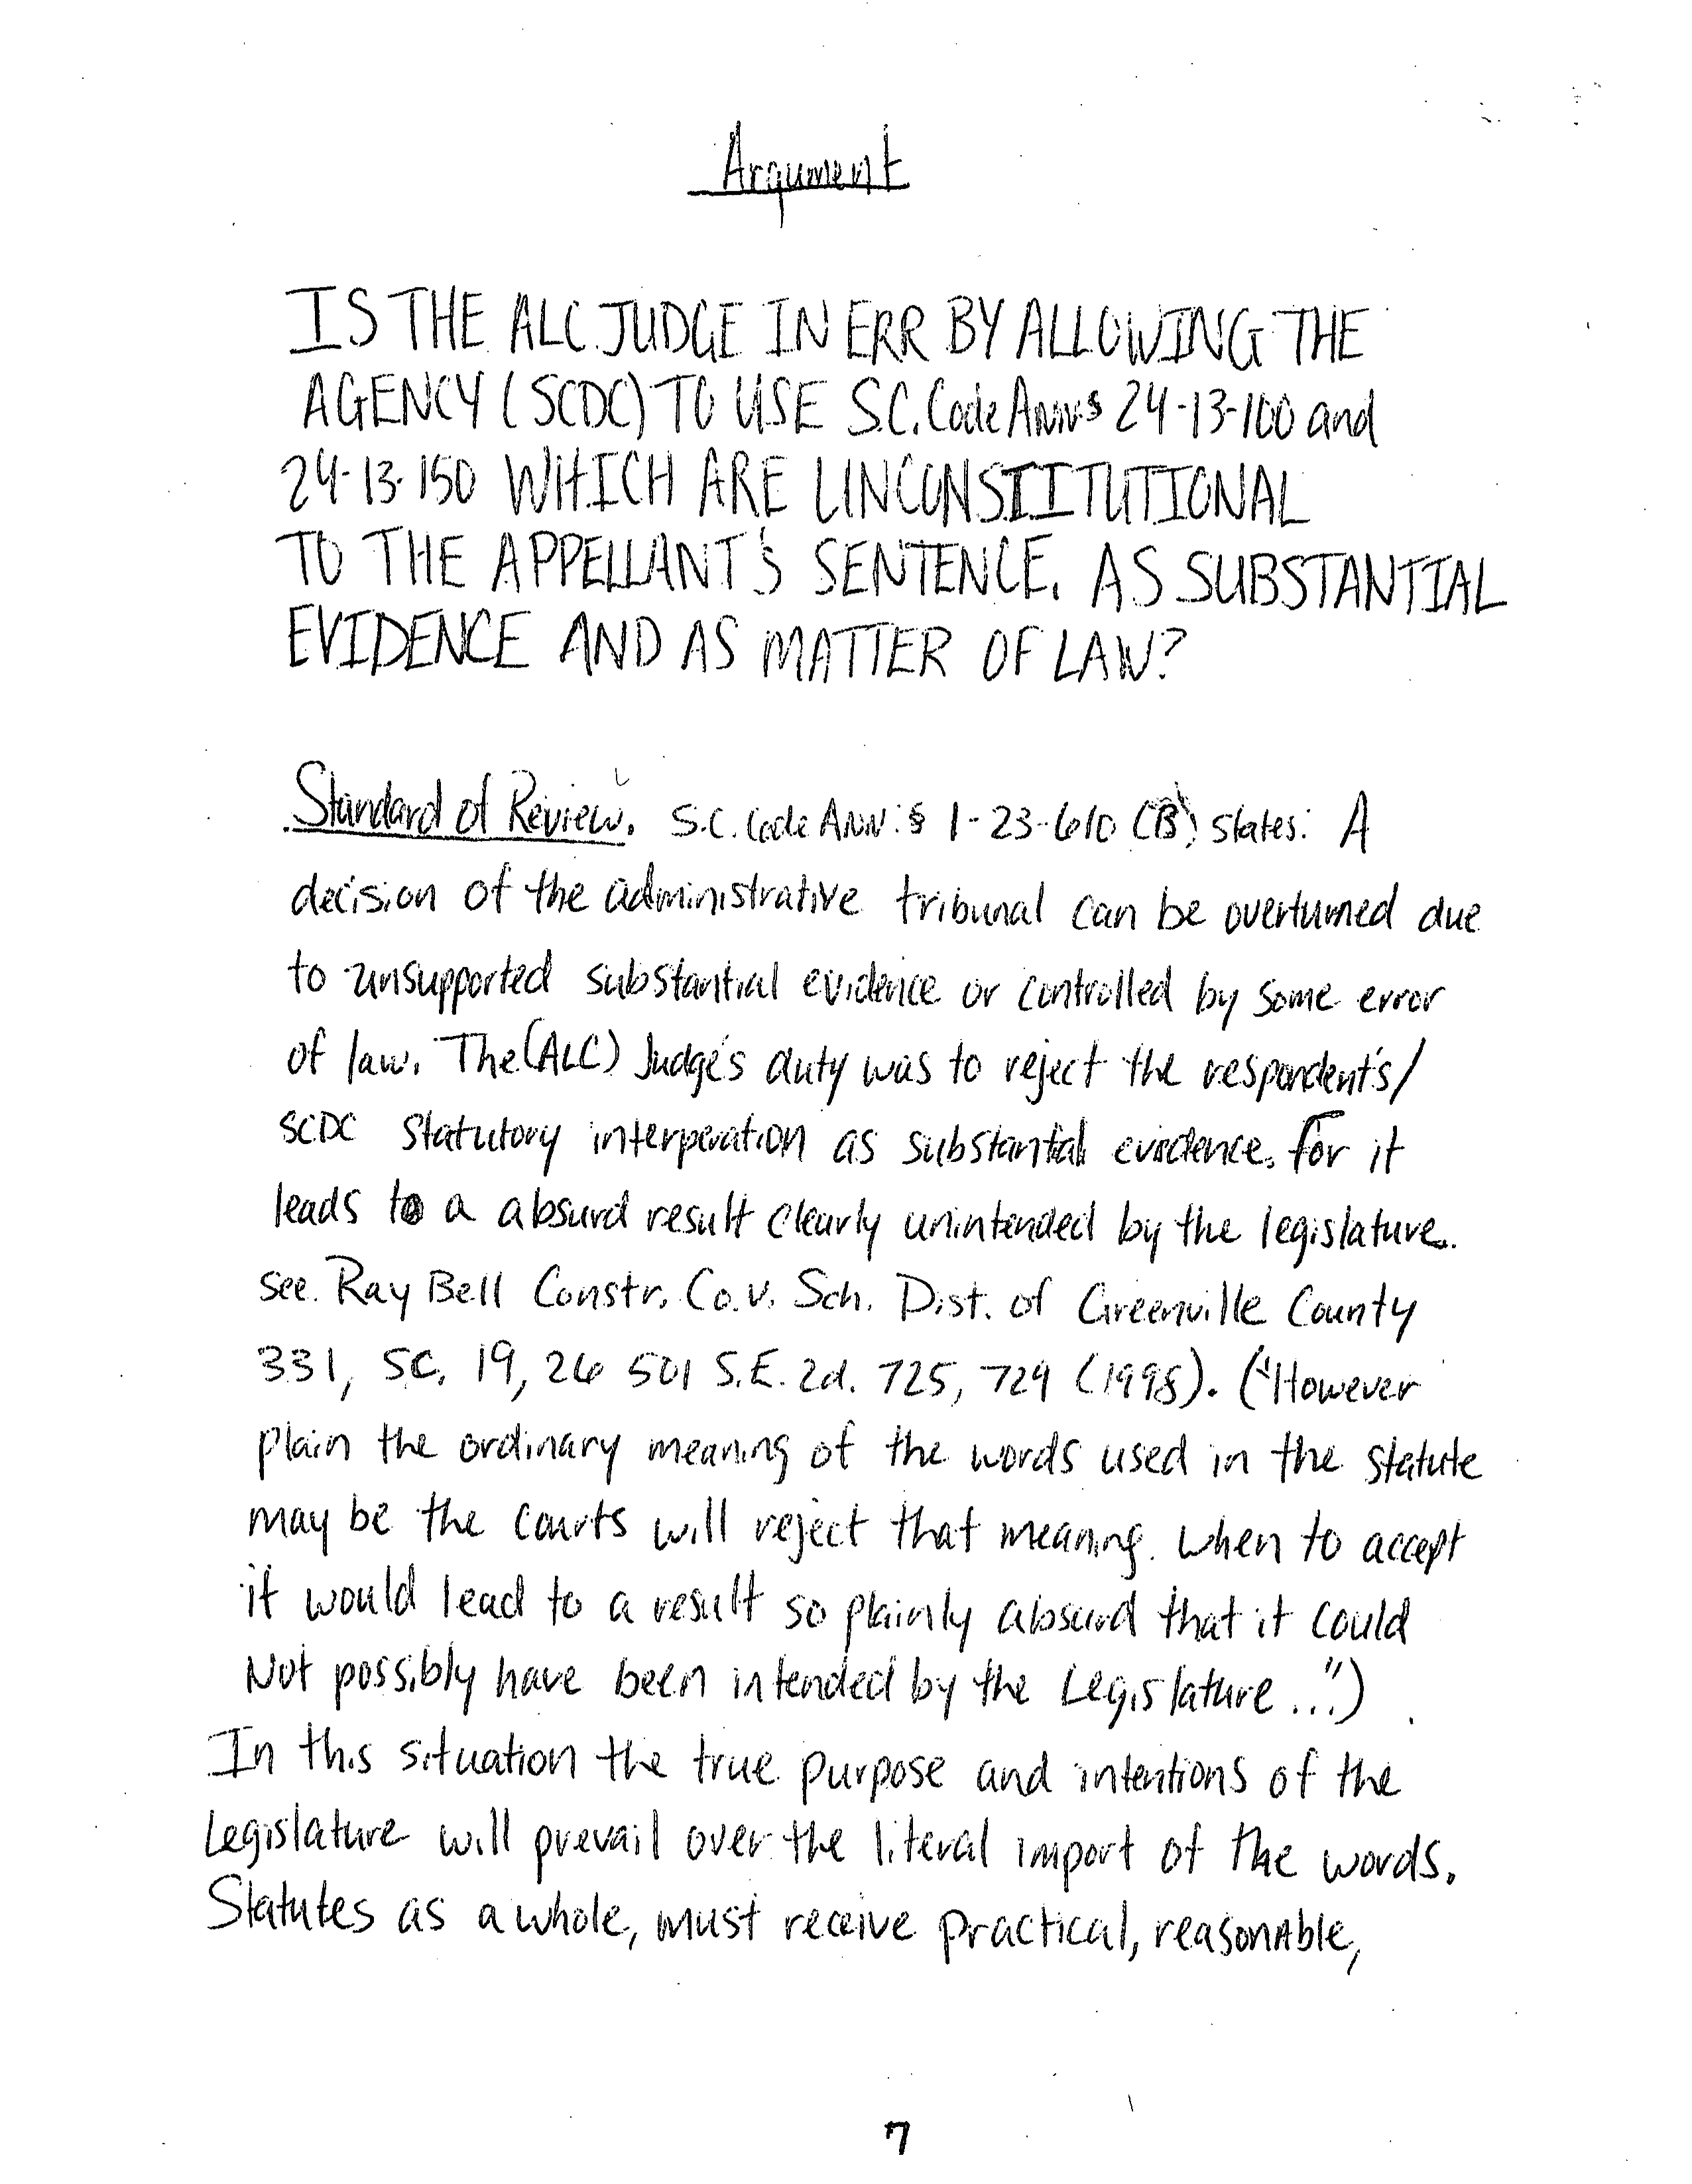 Argument
IS THE ALC JUDGE IN ERR BY ALLOWING THE
AGENCY (SCDC) TO USE S.C. Code Ann § 24-13-100 and
24-13-150 WHICH ARE UNCONSTITUTIONAL
TO THE APPELLANT'S SENTENCE. AS SUBSTANTIAL
EVIDENCE AND AS MATTER OF LAW?
Standard of Review. S.C. Code ANN. § 1-23-610 (B) states: A
decision of the administrative tribunal can be overturned due
to unsupported substantial evidence or controlled by some error
of law. The (ALC) Judge's duty was to reject the respondent's/
SCDC statutory interperation as substantial evidence. for it
leads to a absurd result clearly unintended by the legislature.
See. Ray Bell Constr. Co. v. Sch. Dist. of Greenville County
331, SC. 19, 26 501 S.E. 2d. 725, 729 (1998). ("However
plain the ordinary meaning of the words used in the statute
may be the courts will reject that meaning. when to accept
it would lead to a result so plainly absurd that it could
Not possibly have been intended by the Legislature...")
In this situation the true purpose and intentions of the
Legislature will prevail over the literal import of the words.
Statutes as a whole, must receive practical, reasonable,
7